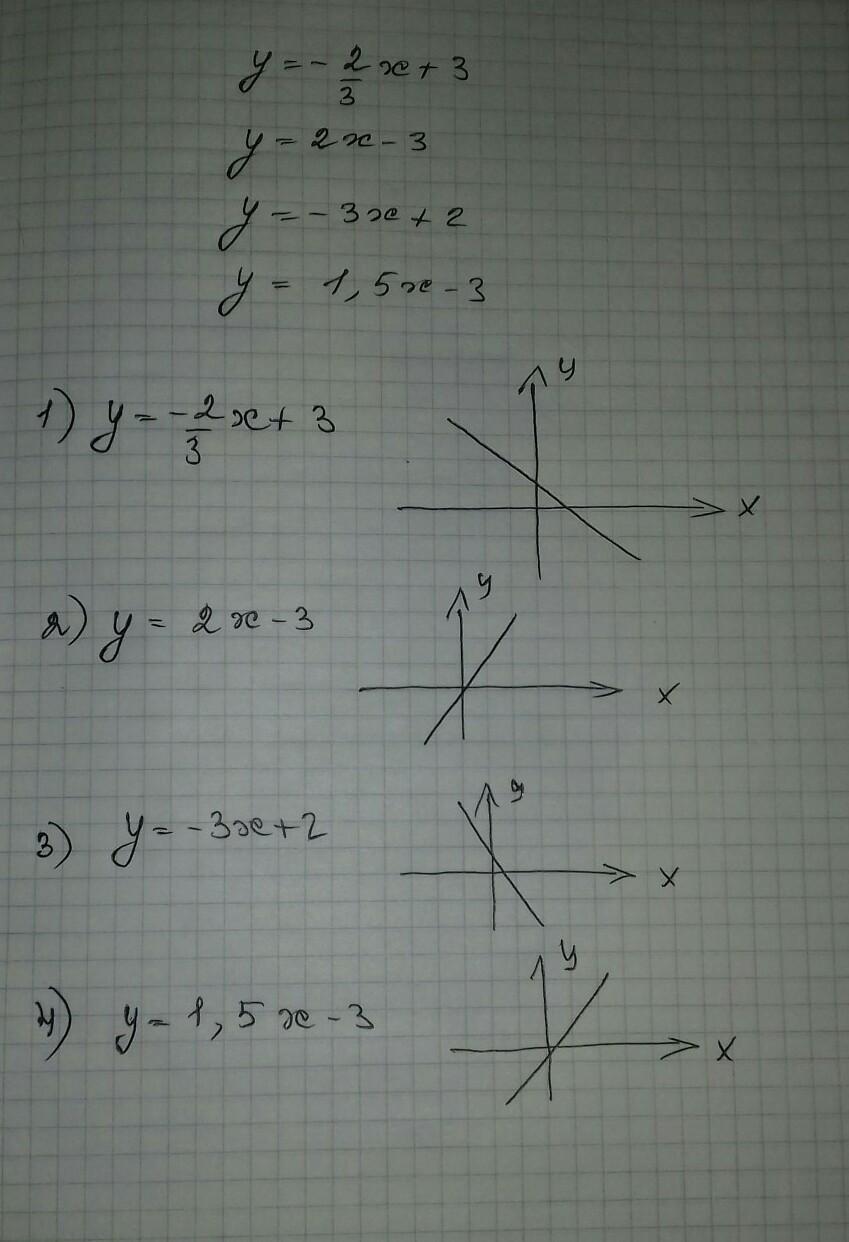 y = -2/3 x + 3
y = 2x - 3
y = -3x + 2
y = 1,5x - 3
1) y = -2/3 x + 3
y
x
2) y = 2x - 3
y
x
3) y = -3x + 2
y
x
4) y = 1,5x - 3
y
x